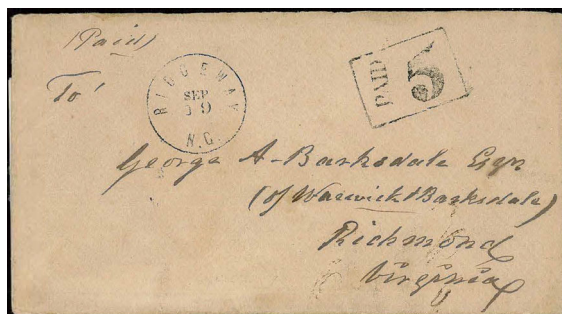 (Paid)
To'
RIDGEWAY
SEP
19
N.C.
PAID
5
George A. Barksdale Esqr
(of Warwick & Barksdale)
Richmond
Virginia